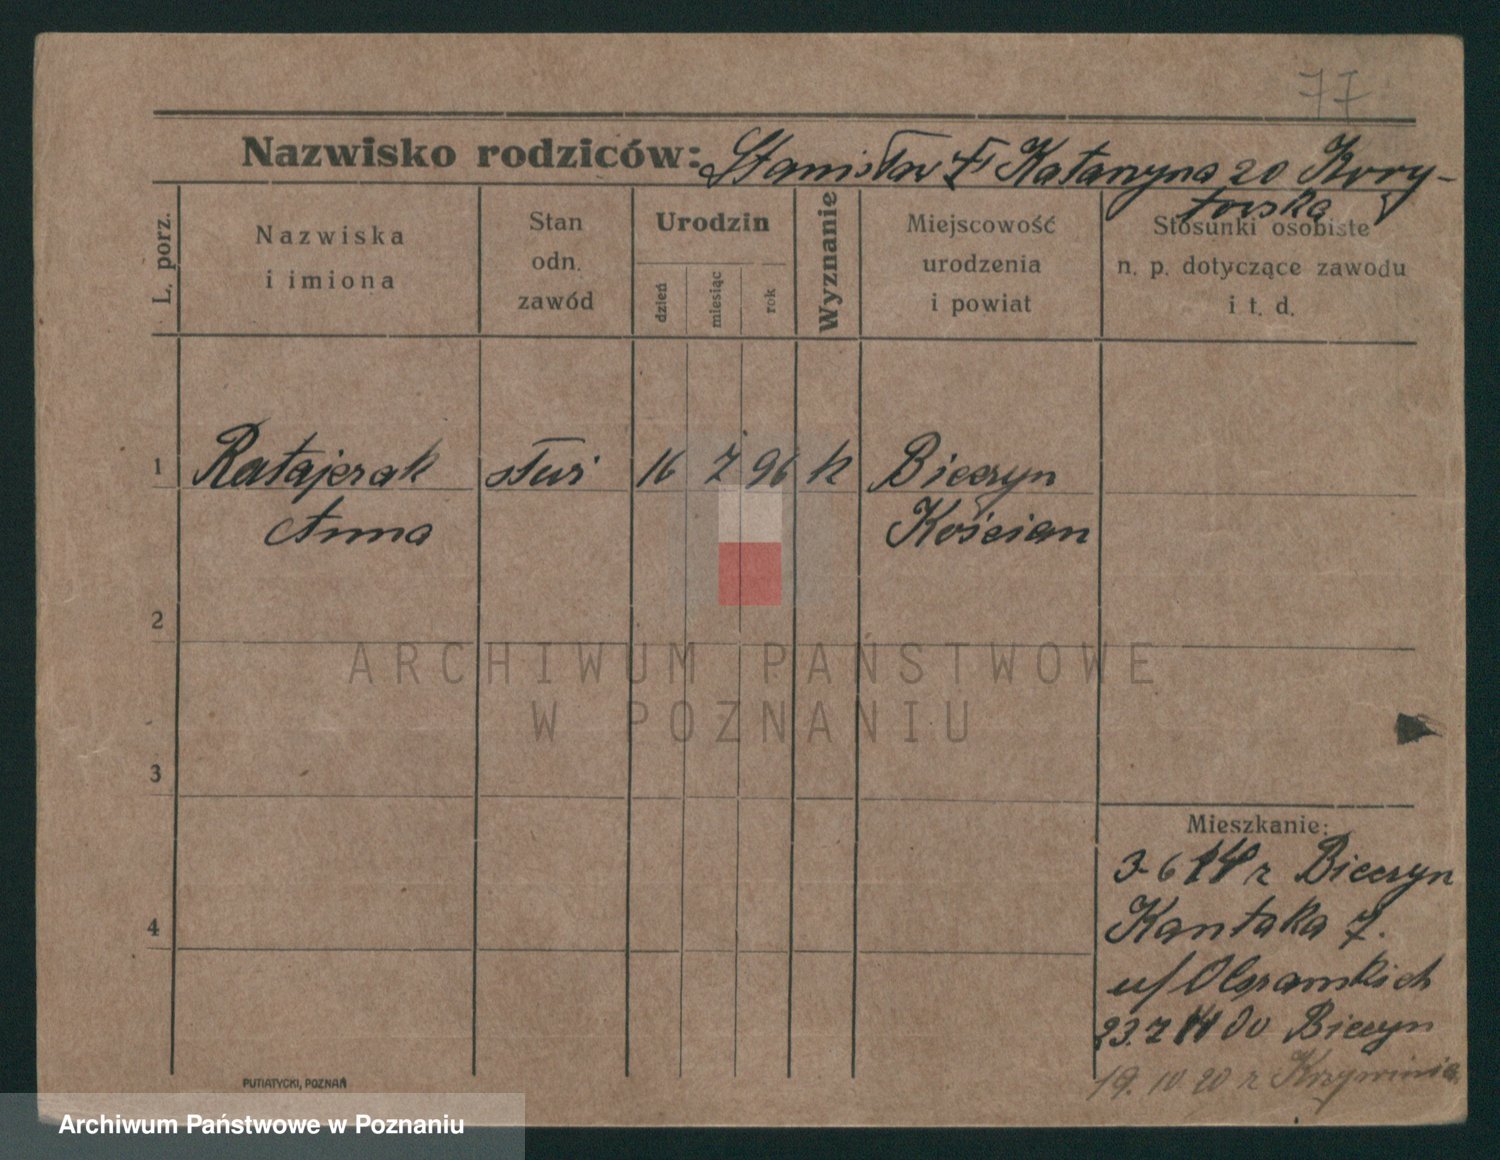 77
Nazwisko rodziców: Stanisław Katarzyna 20 Kory-
torska
L. porz.
Nazwiska
i imiona
Stan
odn.
zawód
Urodzin
dzień
miesiąc
rok
Wyznanie
Miejscowość
urodzenia
i powiat
Stosunki osobiste
n. p. dotyczące zawodu
i t. d.
1 Ratajczak służ 16 7 96 k Bieczyn
Anna Kościan
2
ARCHIWUM PAŃSTWOWE
W POZNANIU
3
Mieszkanie:
3-6 14 z Bieczyn
4
Kantaka 7.
u/
23.7 do Bieczyn
19.10 20 z Krzywinia
PUTIATYCKI, POZNAŃ
Archiwum Państwowe w Poznaniu